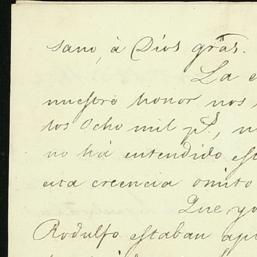 sano, à Dios grãs.
La e
nuestro honor nos
tos Ocho mil p.s, n
no há entendido est
esta creencia omito
Que yo
Rodulfo estaban apt